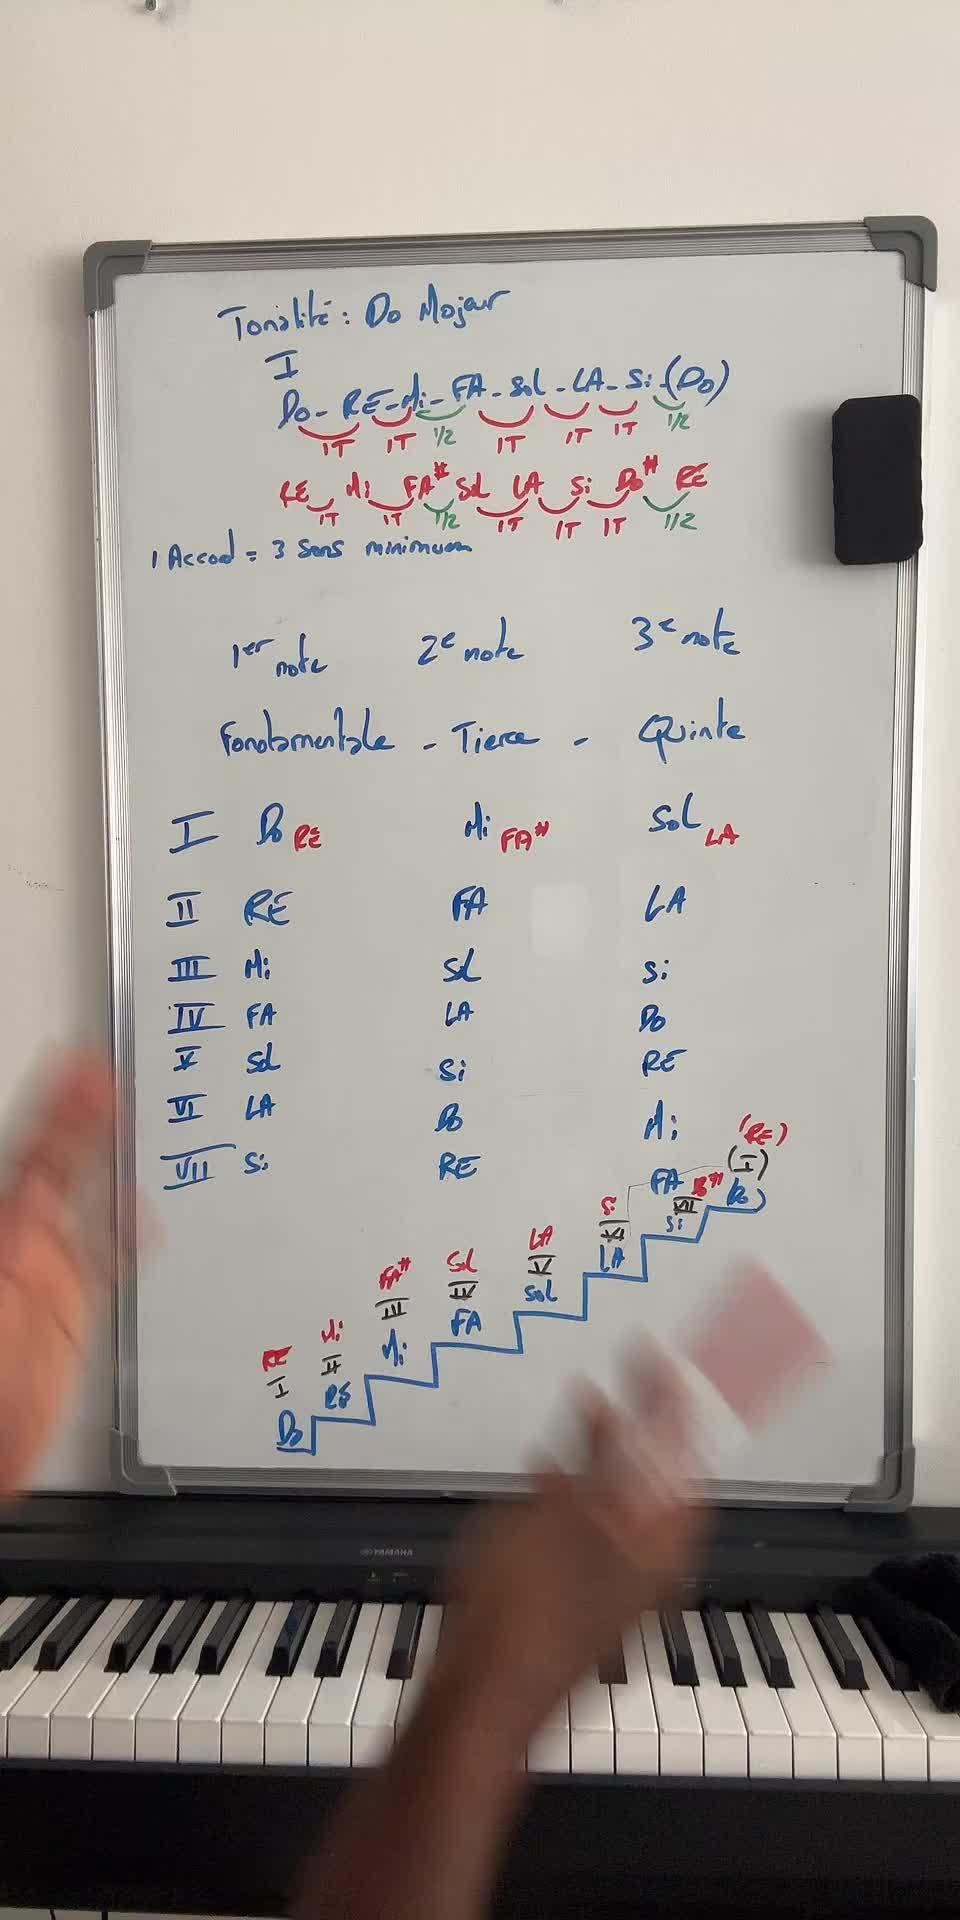 Tonalité : Do Majeur
I
Do - RE - Mi - FA - Sol - LA - Si - (Do)
1T 1T 1/2 1T 1T 1T 1/2
RE Mi FA# Sol LA Si Do# RE
1T 1T 1/2 1T 1T 1T 1/2
1 Accord = 3 Sons minimum
1er note 2e note 3e note
Fondamentale - Tierce - Quinte
I Do RE Mi FA# Sol LA
II RE FA LA
III Mi Sol Si
IV FA LA Do
V Sol Si RE
VI LA Do Mi
VII Si RE FA
(RE)
(I)
(Do)
Do#
VII
Si
Si
VI
LA
LA
V
Sol
Sol
IV
FA
FA#
III
Mi
Mi
II
RE
RE
I
Do
YAMAHA